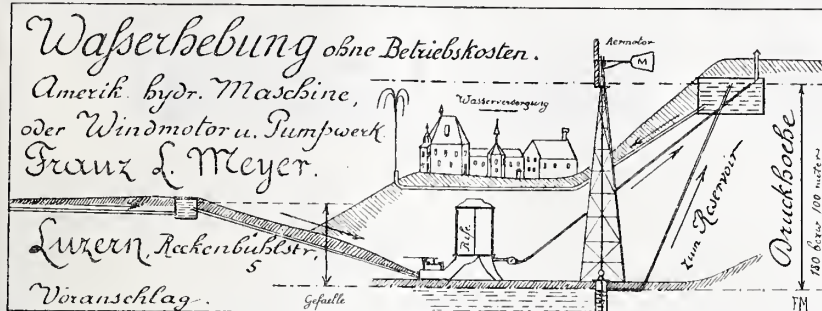 Waſserhebung ohne Betriebskosten.
Amerik. hydr. Maschine,
oder Windmotor u. Pumpwerk
Franz L. Meyer.
Luzern, Reckenbühlstr,
5
Voranschlag.
Gefaelle
Wasserversorgung
Aermotor
M
zum Reservoir
Druckhoehe
180 bezw. 100 meter
FM